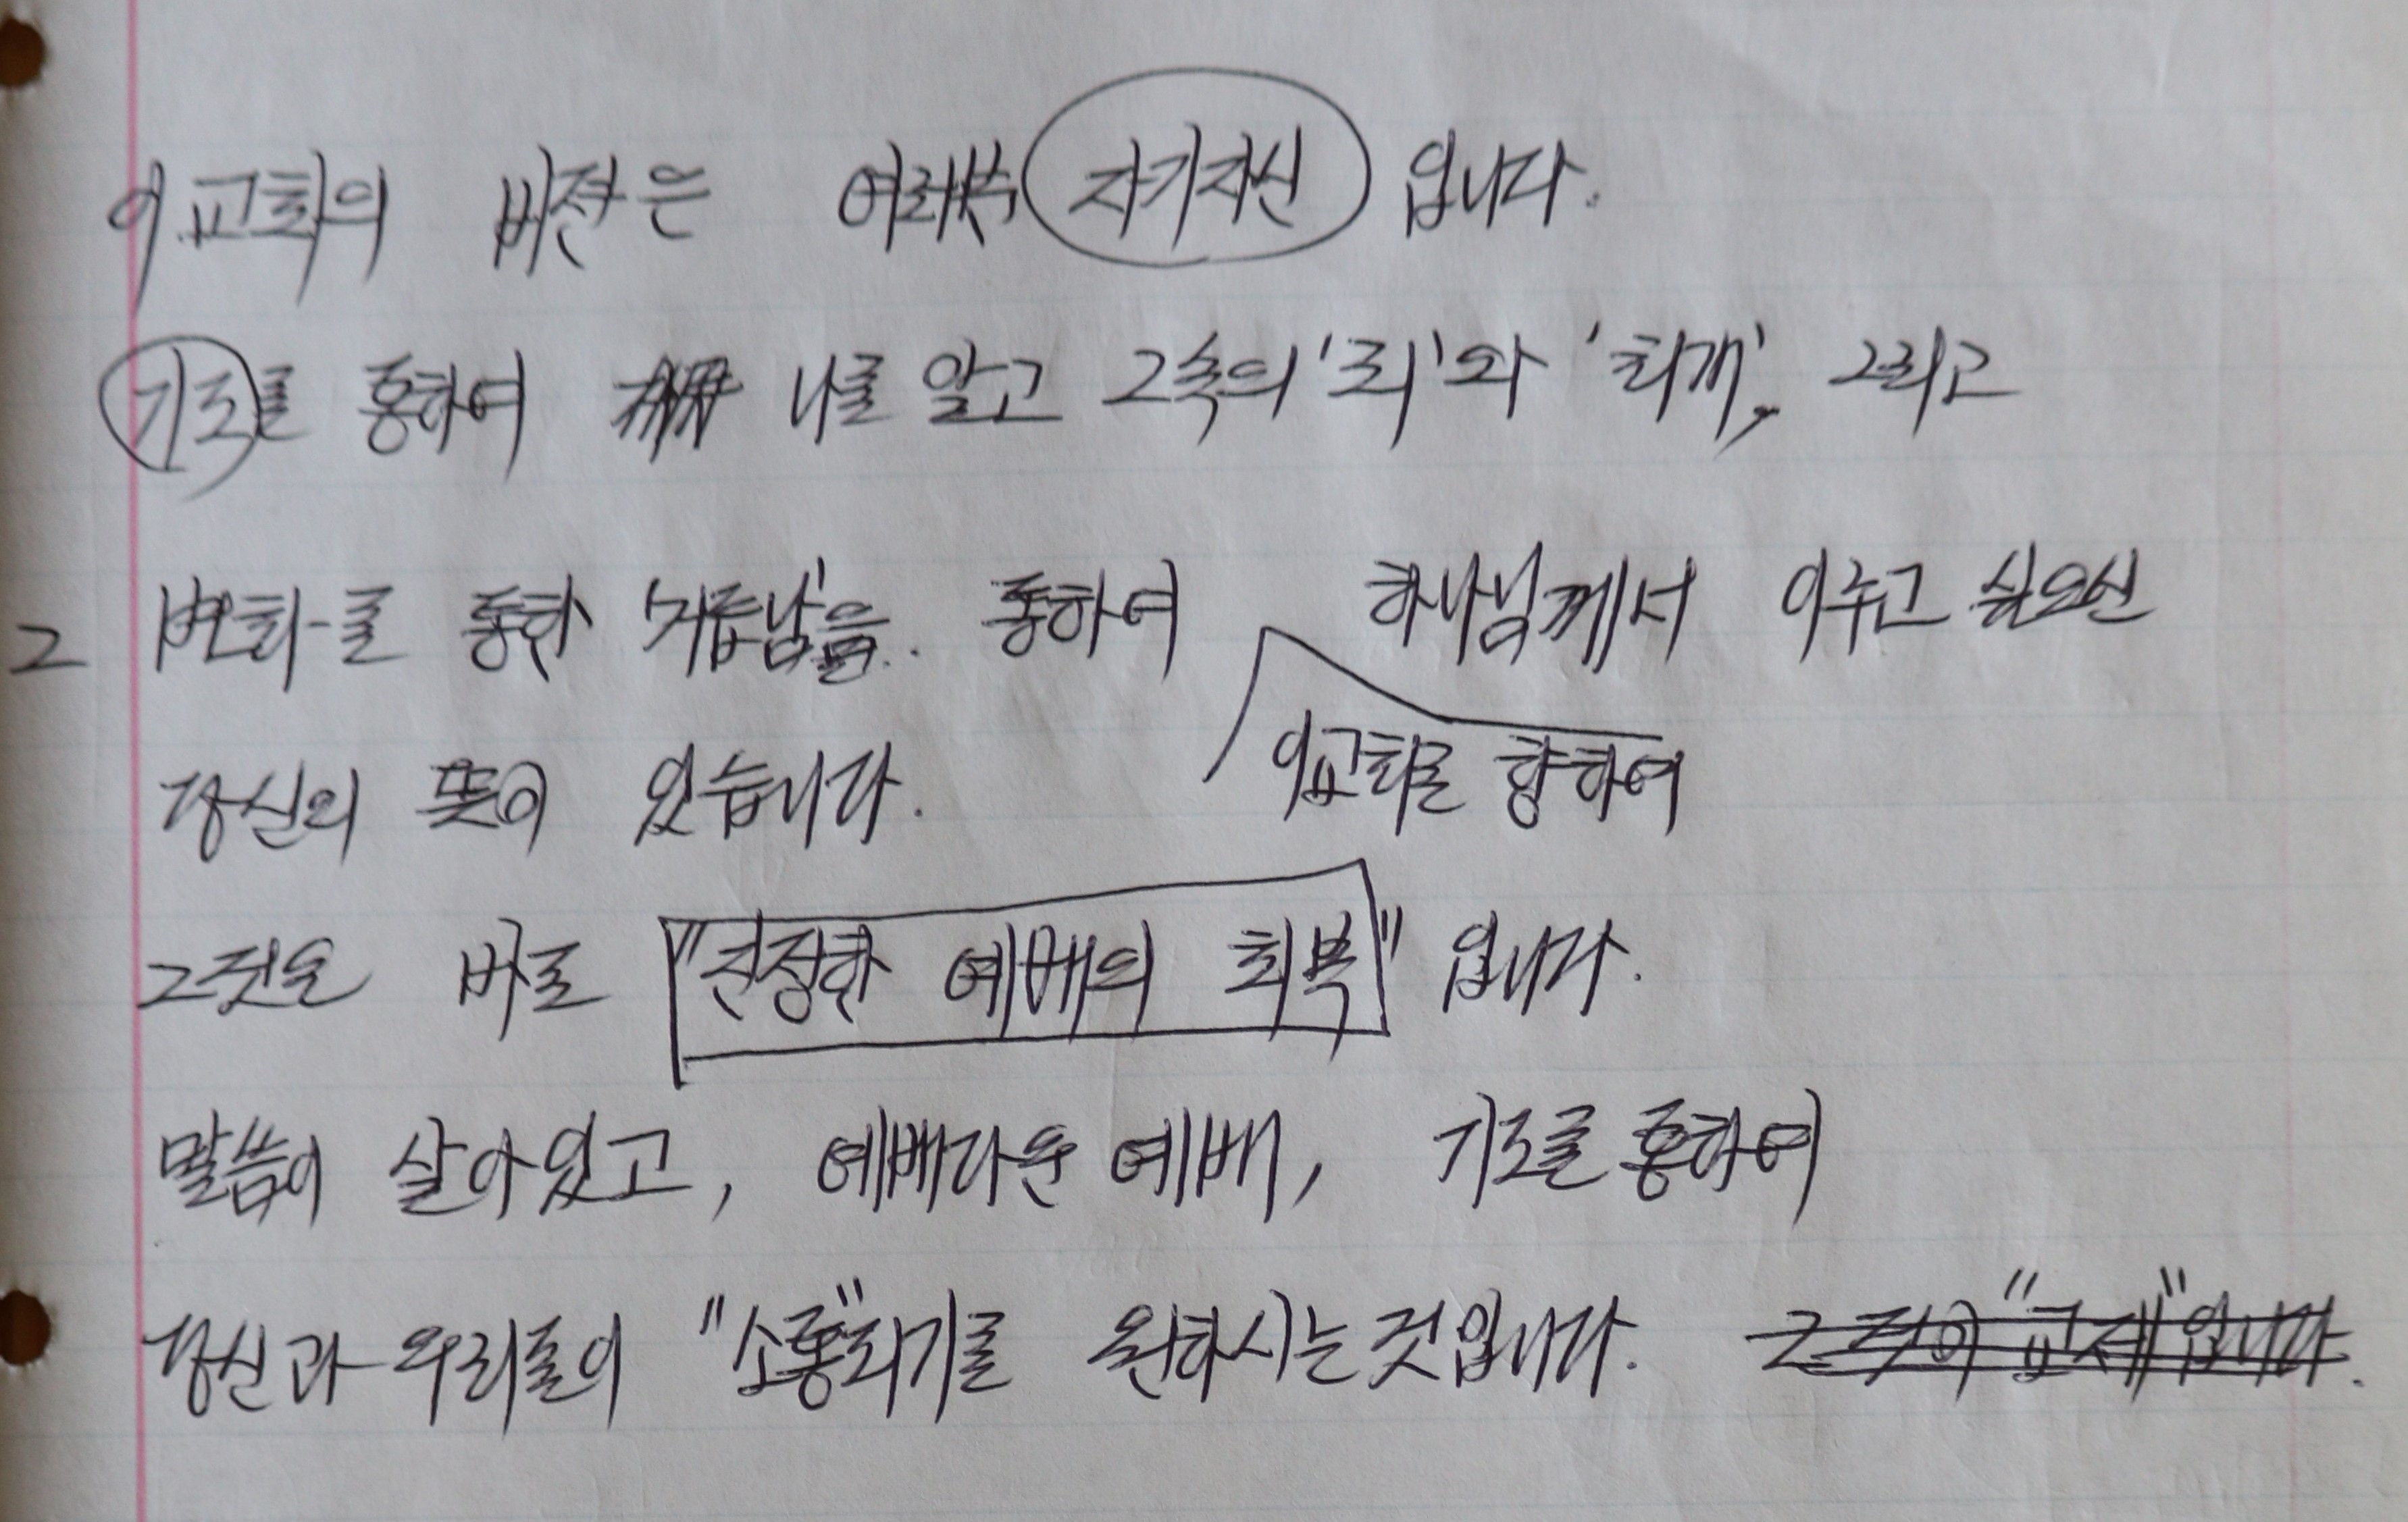 이 교회의 비젼은 여러분 자기자신 입니다.
기도를 통하여 나를 알고 그속의 '죄'와 '회개', 그리고
그 변화를 통한 '거듭남'을 통하여 하나님께서 이루고 싶으신
이교회를 향하여
당신의 뜻이 있습니다.
그것은 바로 "진정한 예배의 회복" 입니다.
말씀이 살아있고, 예배다운 예배, 기도를 통하여
당신과 우리들의 "소통"되기를 원하시는 것입니다. 그것이 "교제"입니다.